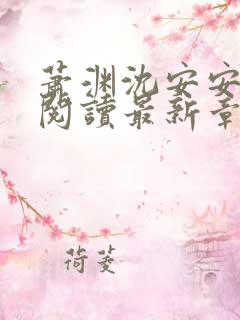 萧渊沈安安
阅读最新章
荷菱